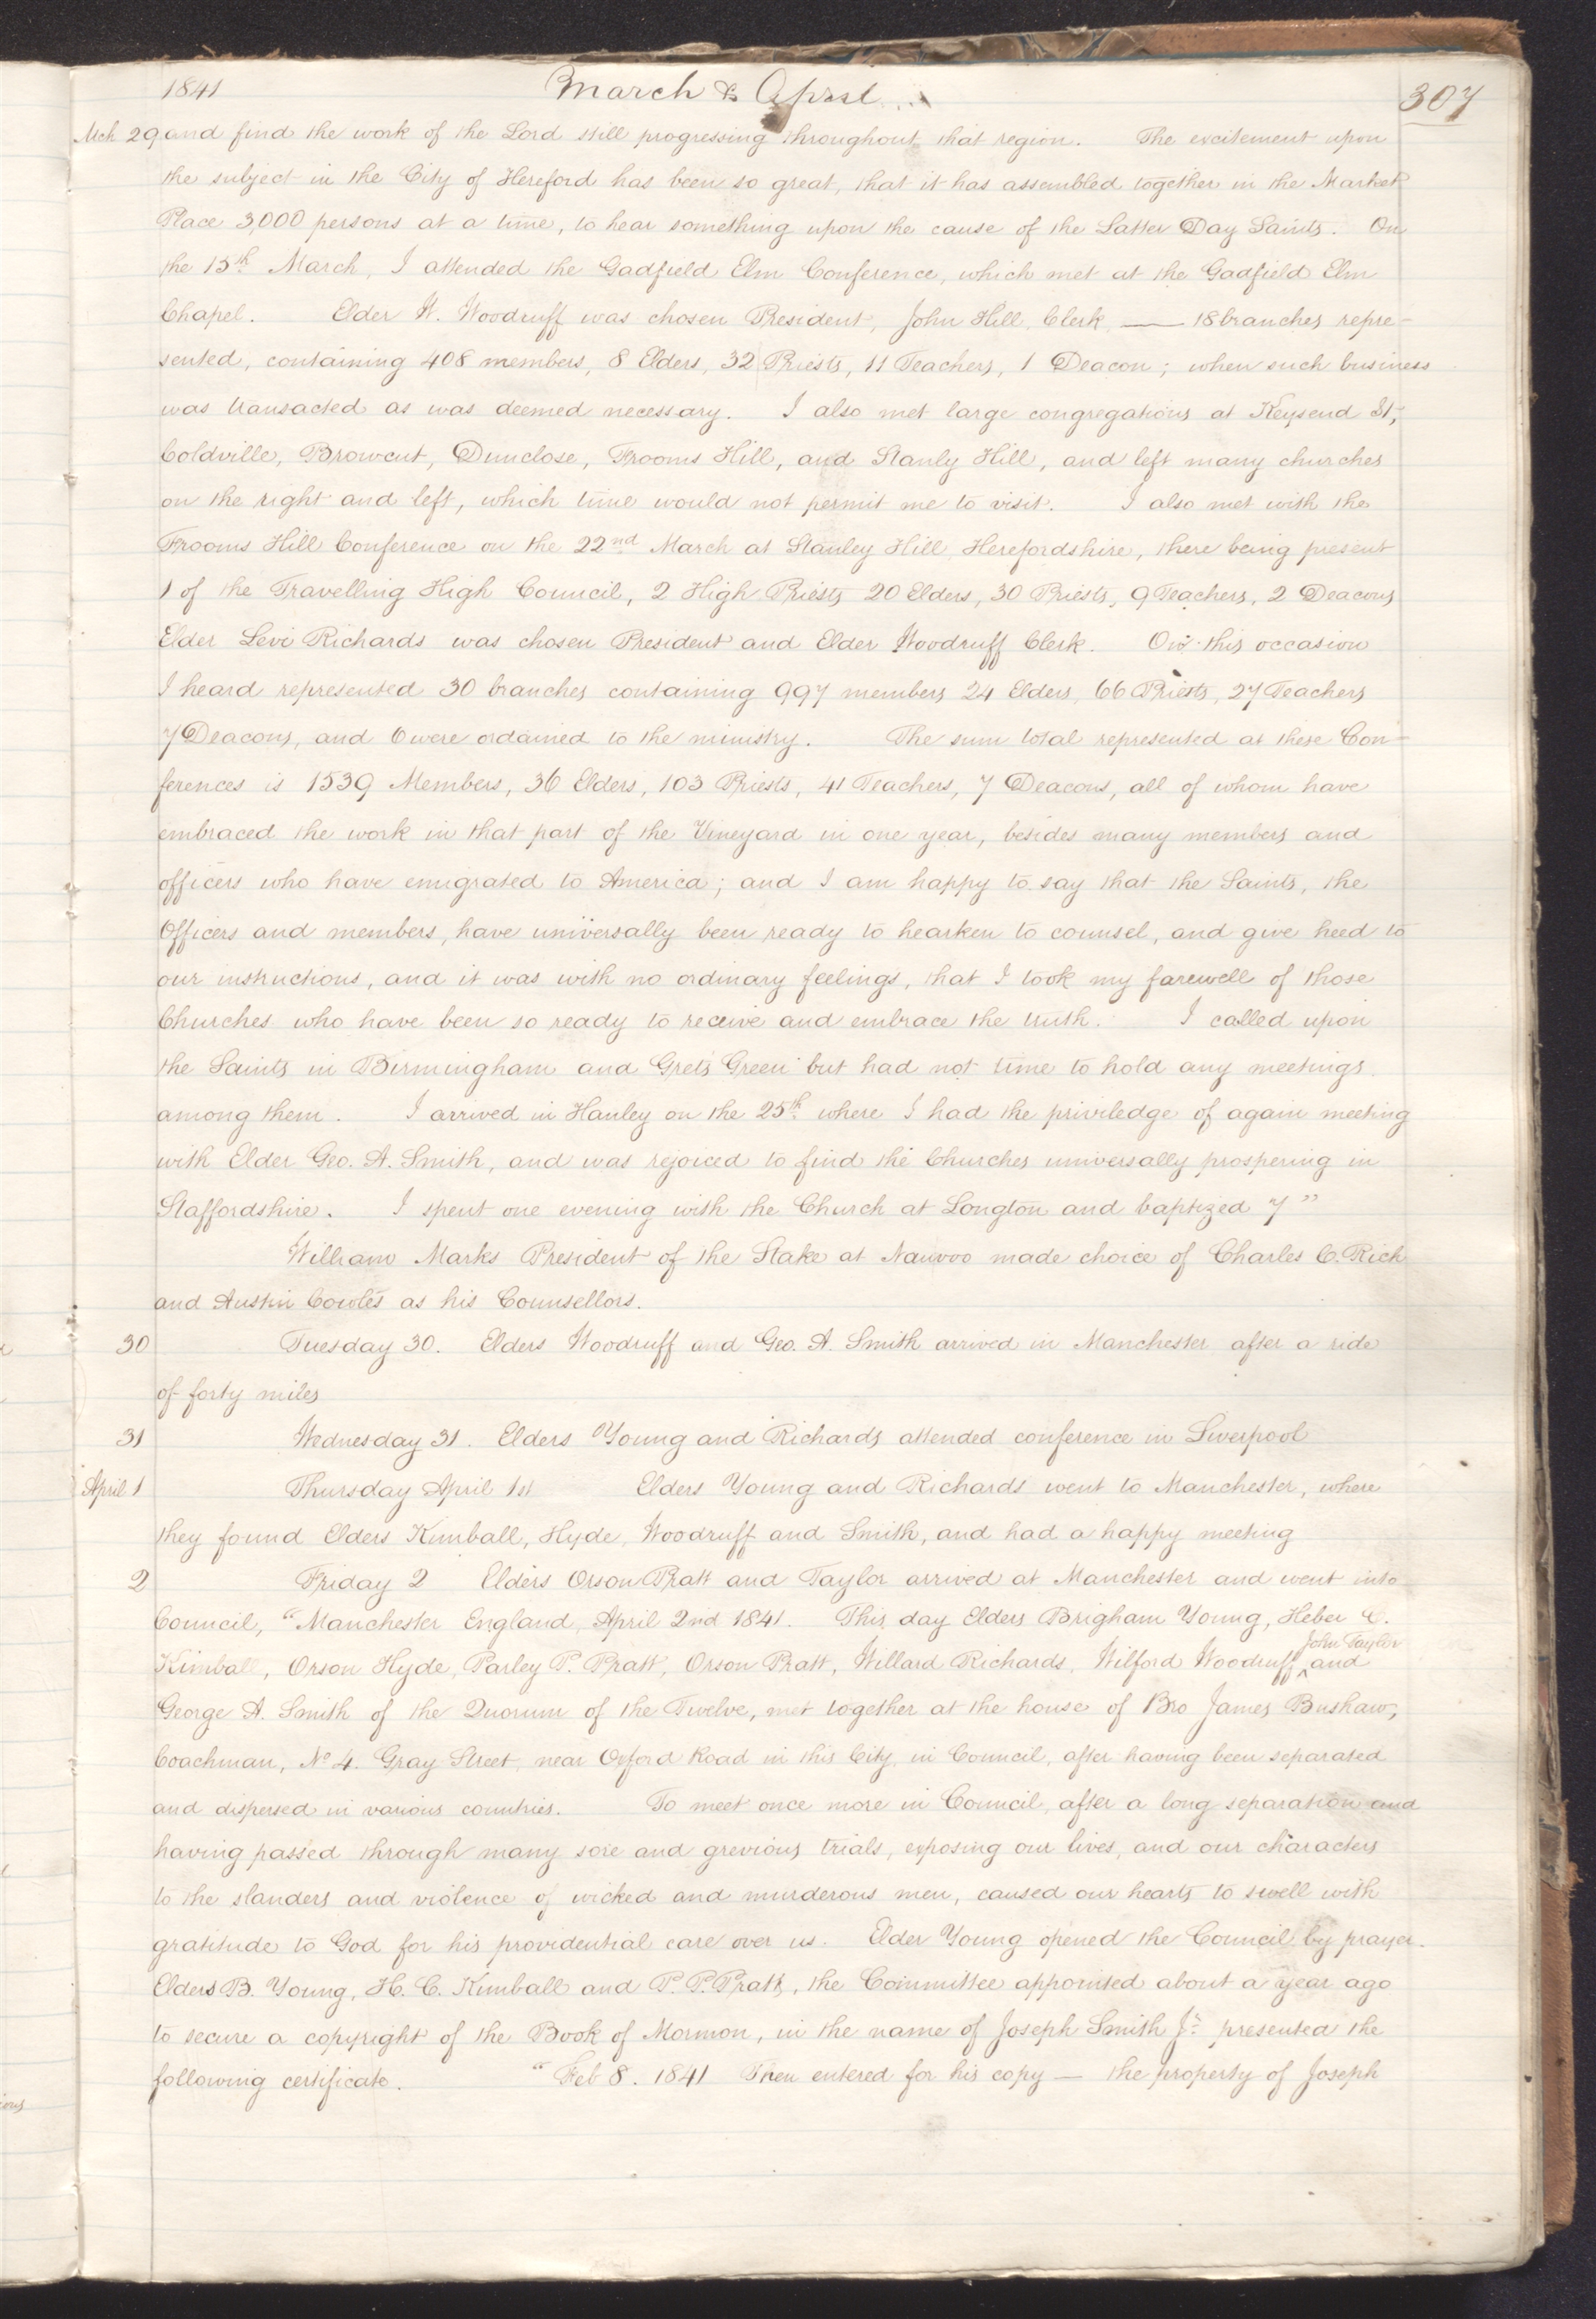 1841 March & April 307
Mch 29 and find the work of the Lord still progressing throughout that region. The excitement upon
the subject in the City of Hereford has been so great, that it has assembled together in the Market
Place 3,000 persons at a time, to hear something upon the cause of the Latter Day Saints. On
the 15th March, I attended the Gadfield Elm Conference, which met at the Gadfield Elm
Chapel. Elder W. Woodruff was chosen President, John Hill, Clerk, — 18 branches repre-
sented, containing 408 members, 8 Elders, 32 Priests, 11 Teachers, 1 Deacon; when such business
was transacted as was deemed necessary. I also met large congregations at Keysend St,
Coldville, Browcut, Dunclose, Frooms Hill, and Stanly Hill, and left many churches
on the right and left, which time would not permit me to visit. I also met with the
Frooms Hill Conference on the 22nd March at Stanley Hill, Herefordshire, there being present
1 of the Travelling High Council, 2 High Priests 20 Elders, 30 Priests, 9 Teachers, 2 Deacons
Elder Levi Richards was chosen President and Elder Woodruff Clerk. On this occasion
I heard represented 30 branches containing 997 members 24 Elders, 66 Priests, 27 Teachers
7 Deacons, and 6 were ordained to the ministry. The sum total represented at these Con-
ferences is 1539 Members, 36 Elders, 103 Priests, 41 Teachers, 7 Deacons, all of whom have
embraced the work in that part of the Vineyard in one year, besides many members and
officers who have emigrated to America; and I am happy to say that the Saints, the
Officers and members, have universally been ready to hearken to counsel, and give heed to
our instructions, and it was with no ordinary feelings, that I took my farewell of those
Churches who have been so ready to receive and embrace the truth. I called upon
the Saints in Birmingham and Grets Green but had not time to hold any meetings
among them. I arrived in Hanley on the 25th where I had the priviledge of again meeting
with Elder Geo. A. Smith, and was rejoiced to find the Churches universally prospering in
Staffordshire. I spent one evening with the Church at Longton and baptized 7"
William Marks President of the Stake at Nauvoo made choice of Charles C. Rich
and Austin Cowles as his Counsellors.
30 Tuesday 30. Elders Woodruff and Geo. A. Smith arrived in Manchester after a ride
of forty miles
31 Wednesday 31. Elders Young and Richards attended conference in Liverpool
April 1 Thursday April 1st Elders Young and Richards went to Manchester, where
they found Elders Kimball, Hyde, Woodruff and Smith, and had a happy meeting
2 Friday 2 Elders Orson Pratt and Taylor arrived at Manchester and went into
Council, "Manchester England, April 2nd 1841. This day Elders Brigham Young, Heber C.
John Taylor
Kimball, Orson Hyde, Parley P. Pratt, Orson Pratt, Willard Richards, Wilford Woodruff, ^ and
George A. Smith of the Quorum of the Twelve, met together at the house of Bro James Bushaw,
Coachman, No 4. Gray Street, near Oxford Road in this City, in Council, after having been separated
and dispersed in various countries. To meet once more in Council, after a long separation and
having passed through many sore and grevious trials, exposing our lives, and our characters
to the slanders and violence of wicked and murderous men, caused our hearts to swell with
gratitude to God for his providential care over us. Elder Young opened the Council by prayer.
Elders B. Young, H. C. Kimball and P. P. Pratt, the Committee appointed about a year ago
to secure a copyright of the Book of Mormon, in the name of Joseph Smith Jr. presented the
following certificate. "Feb 8. 1841 Then entered for his copy — the property of Joseph